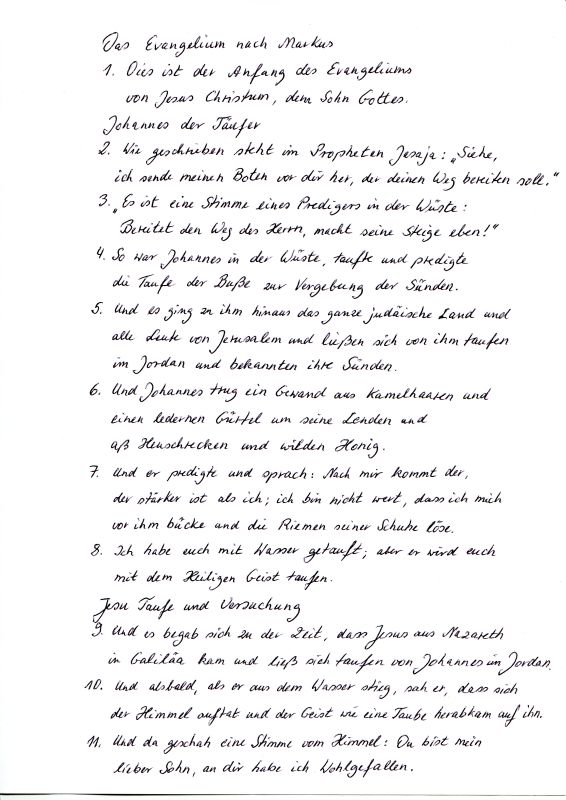 Das Evangelium nach Markus
1. Dies ist der Anfang des Evangeliums
von Jesus Christum, dem Sohn Gottes.
Johannes der Täufer
2. Wie geschrieben steht im Propheten Jesaja: „Siehe,
ich sende meinen Boten vor dir her, der deinen Weg bereiten soll."
3. „Es ist eine Stimme eines Predigers in der Wüste:
Bereitet den Weg des Herrn, macht seine Steige eben!"
4. So war Johannes in der Wüste, taufte und predigte
die Taufe der Buße zur Vergebung der Sünden.
5. Und es ging zu ihm hinaus das ganze judäische Land und
alle Leute von Jerusalem und ließen sich von ihm taufen
im Jordan und bekannten ihre Sünden.
6. Und Johannes trug ein Gewand aus Kamelhaaren und
einen ledernen Gürtel um seine Lenden und
aß Heuschrecken und wilden Honig.
7. Und er predigte und sprach: Nach mir kommt der,
der stärker ist als ich; ich bin nicht wert, dass ich mich
vor ihm bücke und die Riemen seiner Schuhe löse.
8. Ich habe euch mit Wasser getauft; aber er wird euch
mit dem Heiligen Geist taufen.
Jesu Taufe und Versuchung
9. Und es begab sich zu der Zeit, dass Jesus aus Nazareth
in Galiläa kam und ließ sich taufen von Johannes im Jordan.
10. Und alsbald, als er aus dem Wasser stieg, sah er, dass sich
der Himmel auftat und der Geist wie eine Taube herabkam auf ihn.
11. Und da geschah eine Stimme vom Himmel: Du bist mein
lieber Sohn, an dir habe ich Wohlgefallen.